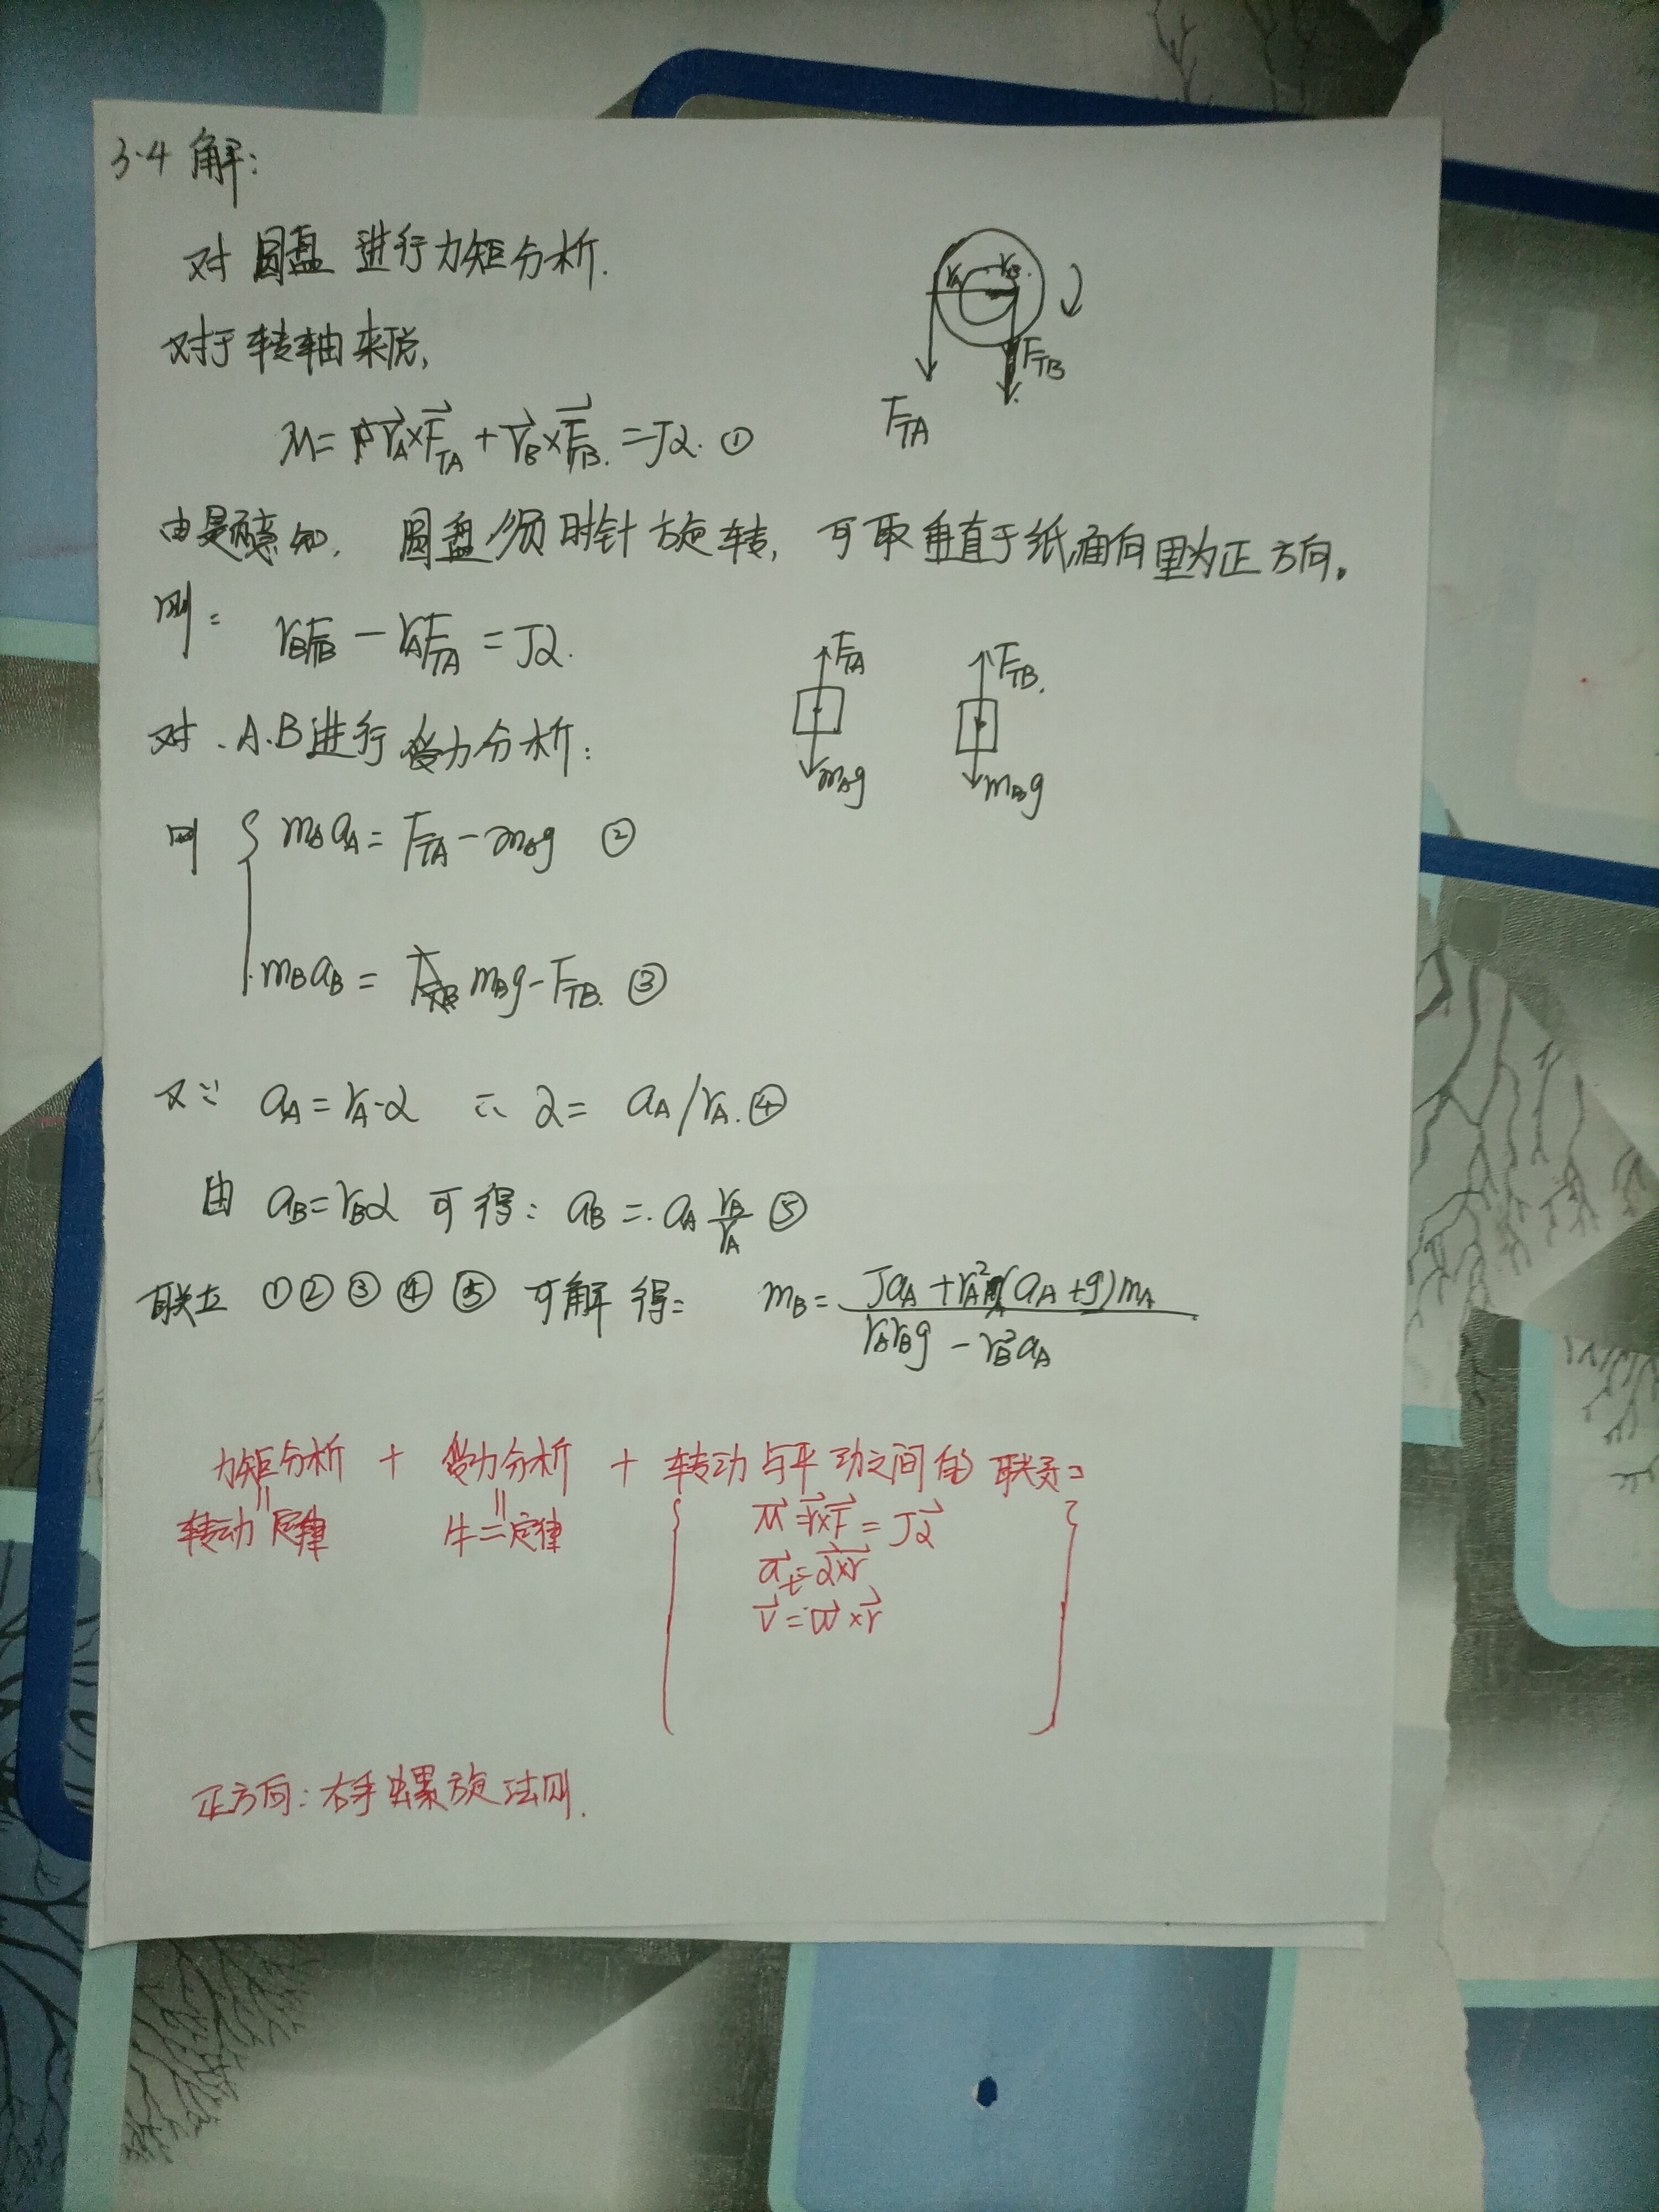 3-4 解:
对圆盘进行力矩分析.
对于转轴来说,
M = r⃗A×F⃗TA + r⃗B×F⃗TB. = Jα. ①
rA rB
FTB
FTA
由题意知, 圆盘顺时针旋转, 可取垂直于纸面向里为正方向。
则: rBFTB - rAFTA = Jα.
对.A.B进行受力分析:
FTA FTB.
mAg mBg
则 { mAaA = FTA - mAg ②
mBaB = mBg - FTB. ③
又∵ aA = rA·α ∴ α = aA/rA. ④
由 aB = rBα 可得: aB = aA rB/rA ⑤
联立 ①②③④⑤ 可解得: mB = (JaA + rA²(aA+g)mA)/(rArBg - rB²aA)
力矩分析 + 受力分析 + 转动与平动之间的联系:
‖ ‖
转动定律 牛二定律
M⃗ = r⃗×F⃗ = Jα⃗
a⃗t = α⃗×r⃗
v⃗ = ω⃗×r⃗
正方向: 右手螺旋法则.